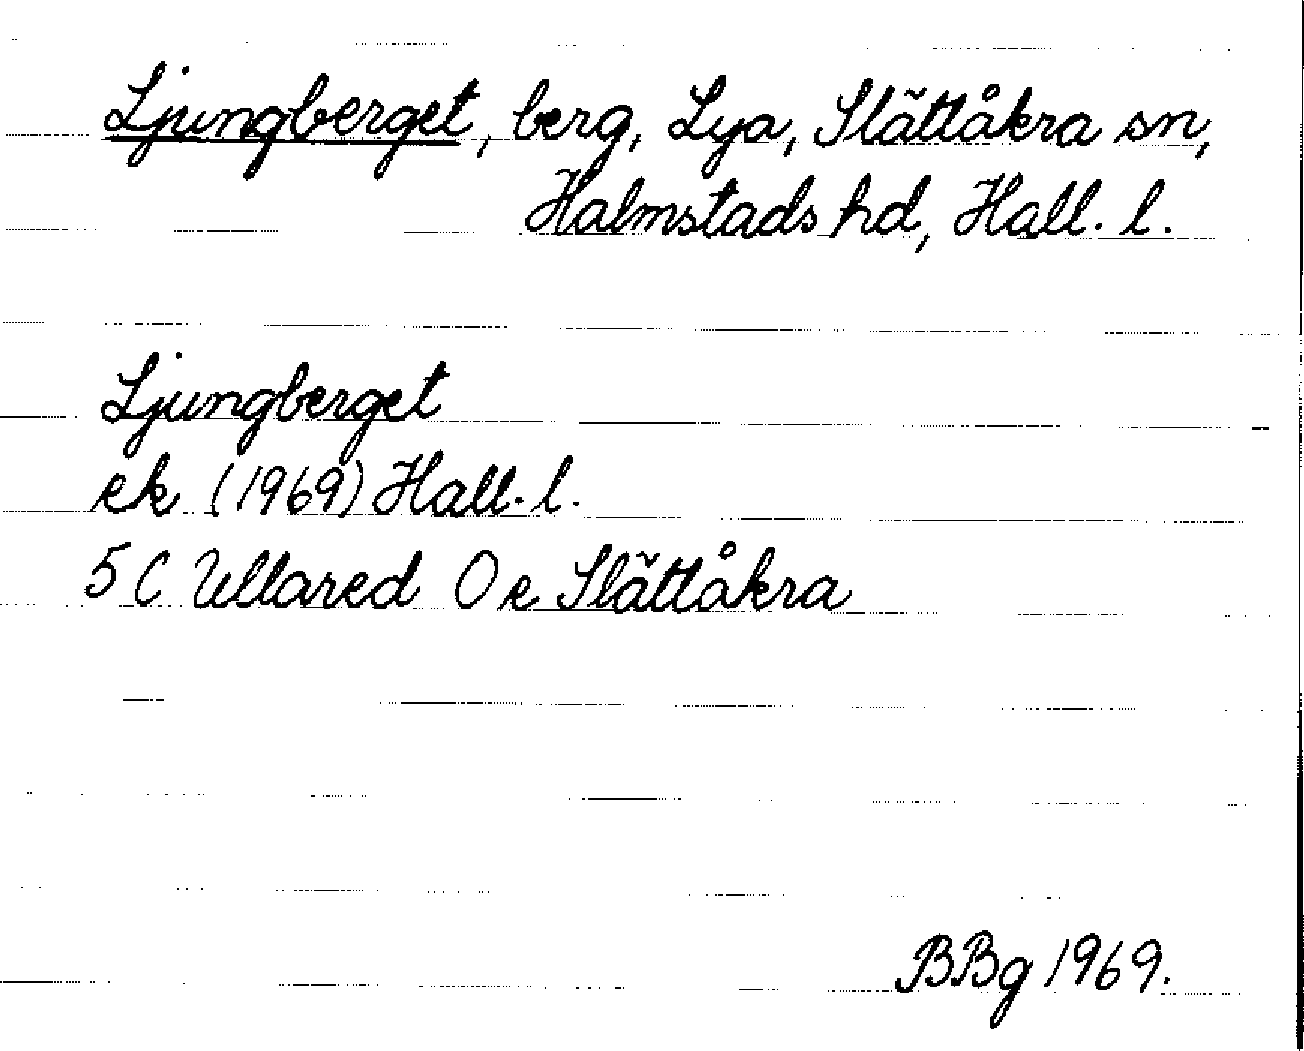 Ljungberget, berg, Lya, Slättåkra sn,
Halmstads hd, Hall. l.
Ljungberget
ek (1969) Hall. l.
5 C Ullared 0 e Slättåkra
BBg 1969.